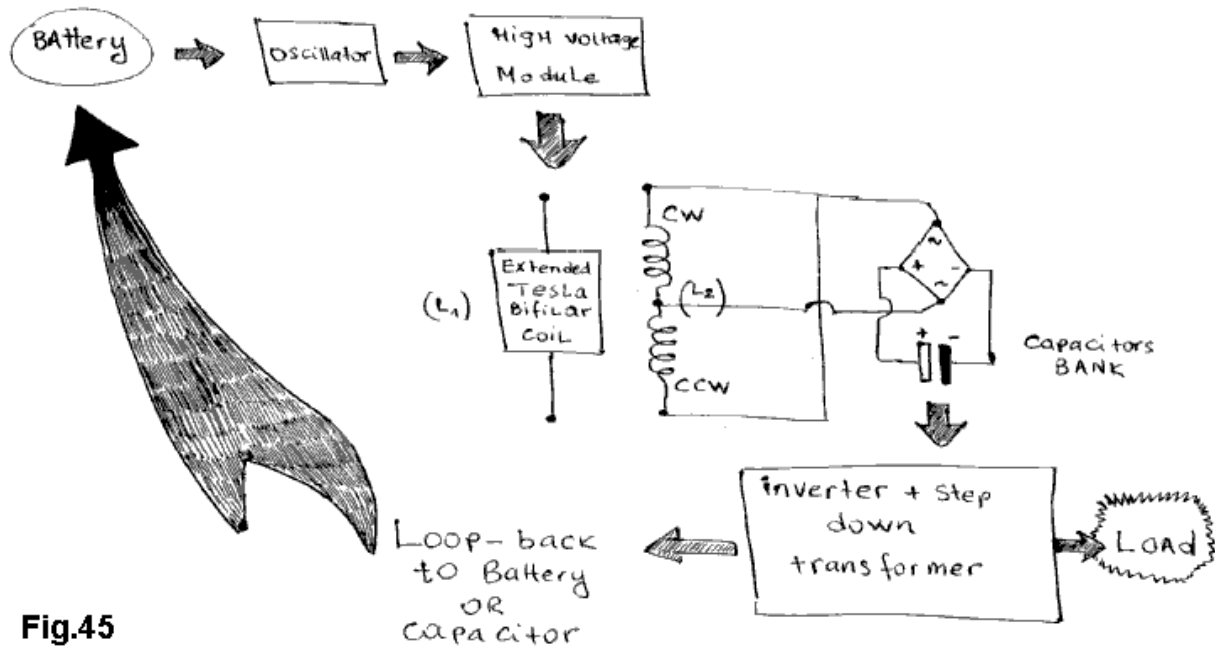 BAttery
Oscillator
HigH voltage
ModuLe
CW
(L1)
Extended
TesLa
BifiLar
coiL
(L2)
CCW
~
+
-
~
+
-
Capacitors
BANK
inverter + step
down
transformer
LOAd
Loop-back
to Battery
OR
capacitor
Fig.45